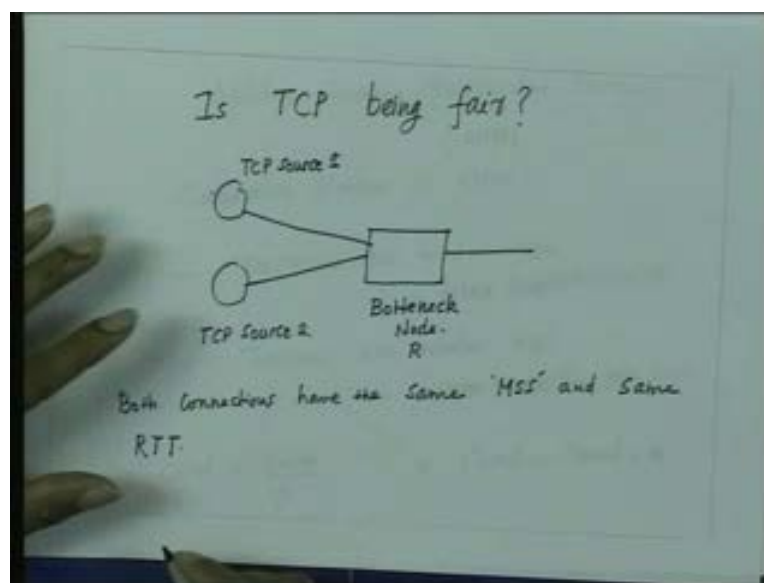 Is TCP being fair?
TCP Source 1
TCP Source 2
Bottleneck
Node.
R
Both Connections have the same "MSS" and same
RTT.